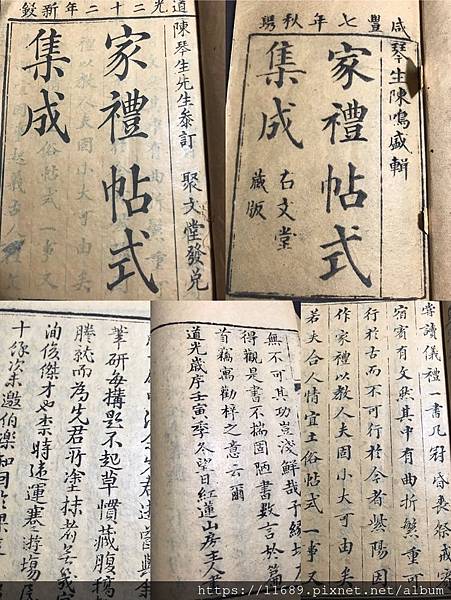 道光二十二年新鐫
陳琴生先生叅訂
家禮帖式
集成
聚文堂發兌
咸豐七年秋鐫
琴生陳鳴盛輯
家禮帖式
集成
右文堂
藏版
筆研每搆思不起草慣藏腹稿
謄就而為先君所塗抹者無幾
洵俊傑才也柰時迍運蹇遊場屋
十餘次未邀伯樂
無不可其功豈淺鮮哉予
得觀是書不揣固陋書數言於篇
首藉寓勸梓之意云爾
道光歲序壬寅季冬望日紅蓮山房主人書
嘗讀儀禮一書凡冠昏喪祭
宿賓有文然其中有曲折繁重可
行於古而不可行於今者紫陽因
作家禮以教人夫固小大可由矣
若夫合人情宜土俗帖式一事又
https://11689.pixnet.net/album